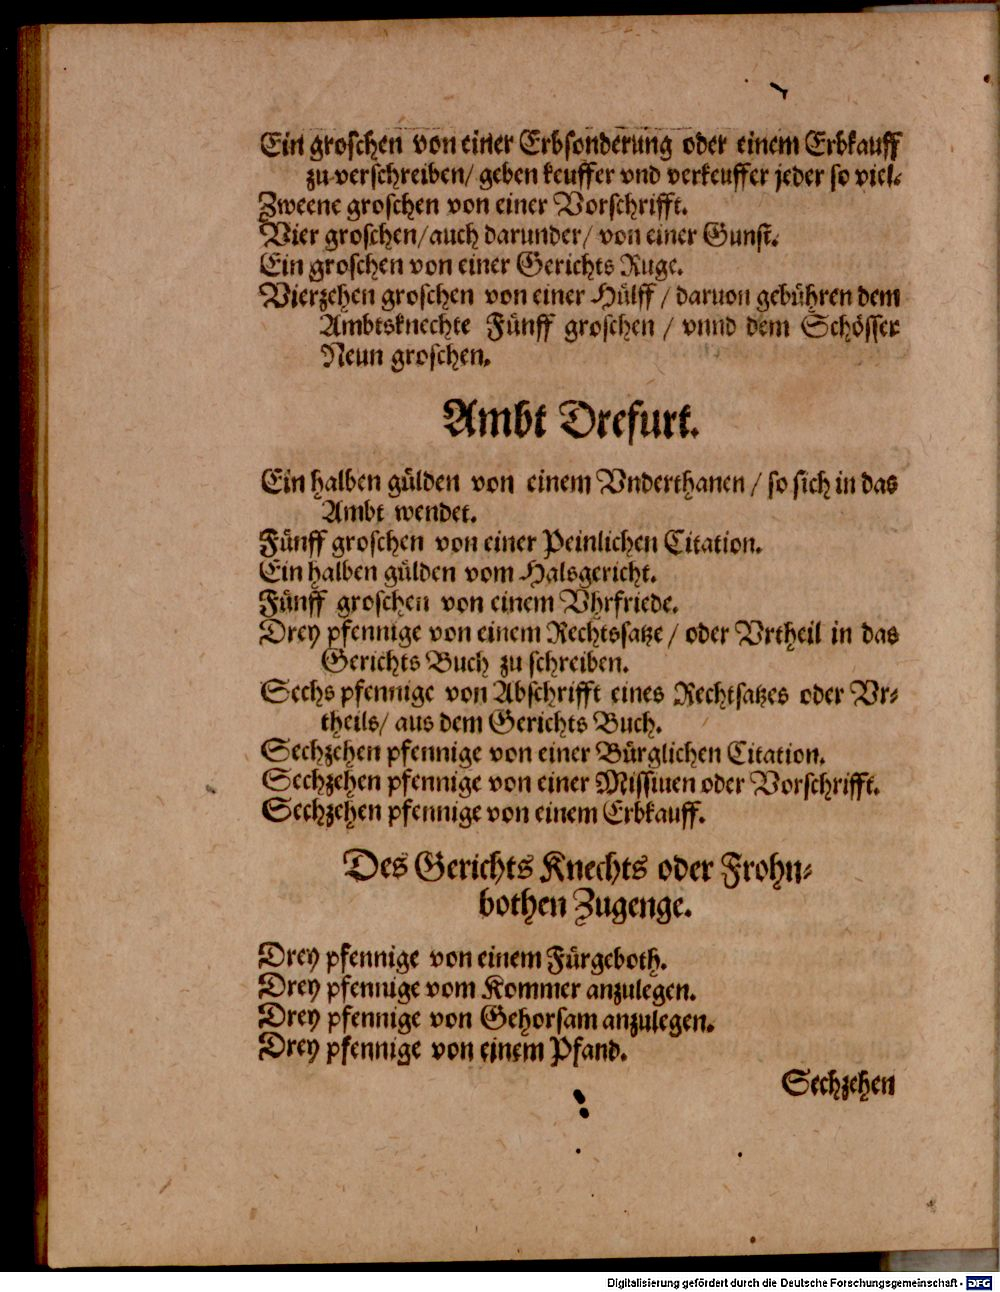 Ein groschen von einer Erbsonderung oder einem Erbkauff
zu verschreiben/ geben keuffer vnd verkeuffer jeder so viel.
Zweene groschen von einer Vorschrifft.
Vier groschen/ auch darunder/ von einer Gunst.
Ein groschen von einer Gerichts Ruge.
Vierzehen groschen von einer Hülff / daruon gebühren dem
Ambtsknechte Fünff groschen / vnnd dem Schösser
Neun groschen.
Ambt Drefurt.
Ein halben gülden von einem Vnderthanen / so sich in das
Ambt wendet.
Fünff groschen von einer Peinlichen Citation.
Ein halben gülden vom Halsgericht.
Fünff groschen von einem Vhrfriede.
Drey pfennige von einem Rechtssatze / oder Vrtheil in das
Gerichts Buch zu schreiben.
Sechs pfennige von Abschrifft eines Rechtsatzes oder Vr-
theils/ aus dem Gerichts Buch.
Sechzehen pfennige von einer Bürglichen Citation.
Sechzehen pfennige von einer Missiuen oder Vorschrifft.
Sechzehen pfennige von einem Erbkauff.
Des Gerichts Knechts oder Frohn-
bothen Zugenge.
Drey pfennige von einem Fürgeboth.
Drey pfennige vom Kommer anzulegen.
Drey pfennige von Gehorsam anzulegen.
Drey pfennige von einem Pfand.
Sechzehen
Digitalisierung gefördert durch die Deutsche Forschungsgemeinschaft - DFG